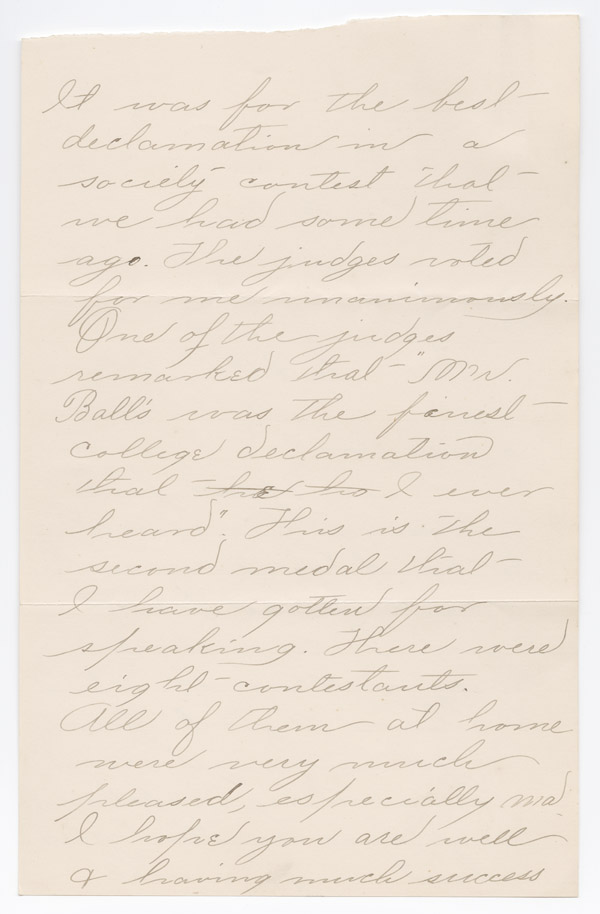 It was for the best
declamation in a
society contest that
we had some time
ago. The judges voted
for me unanimously.
One of the judges
remarked that "Mr.
Ball's was the finest
college declamation
that he ho I ever
heard". This is the
second medal that
I have gotten for
speaking. There were
eight contestants.
All of them at home
were very much
pleased, especially ma
I hope you are well
& having much success